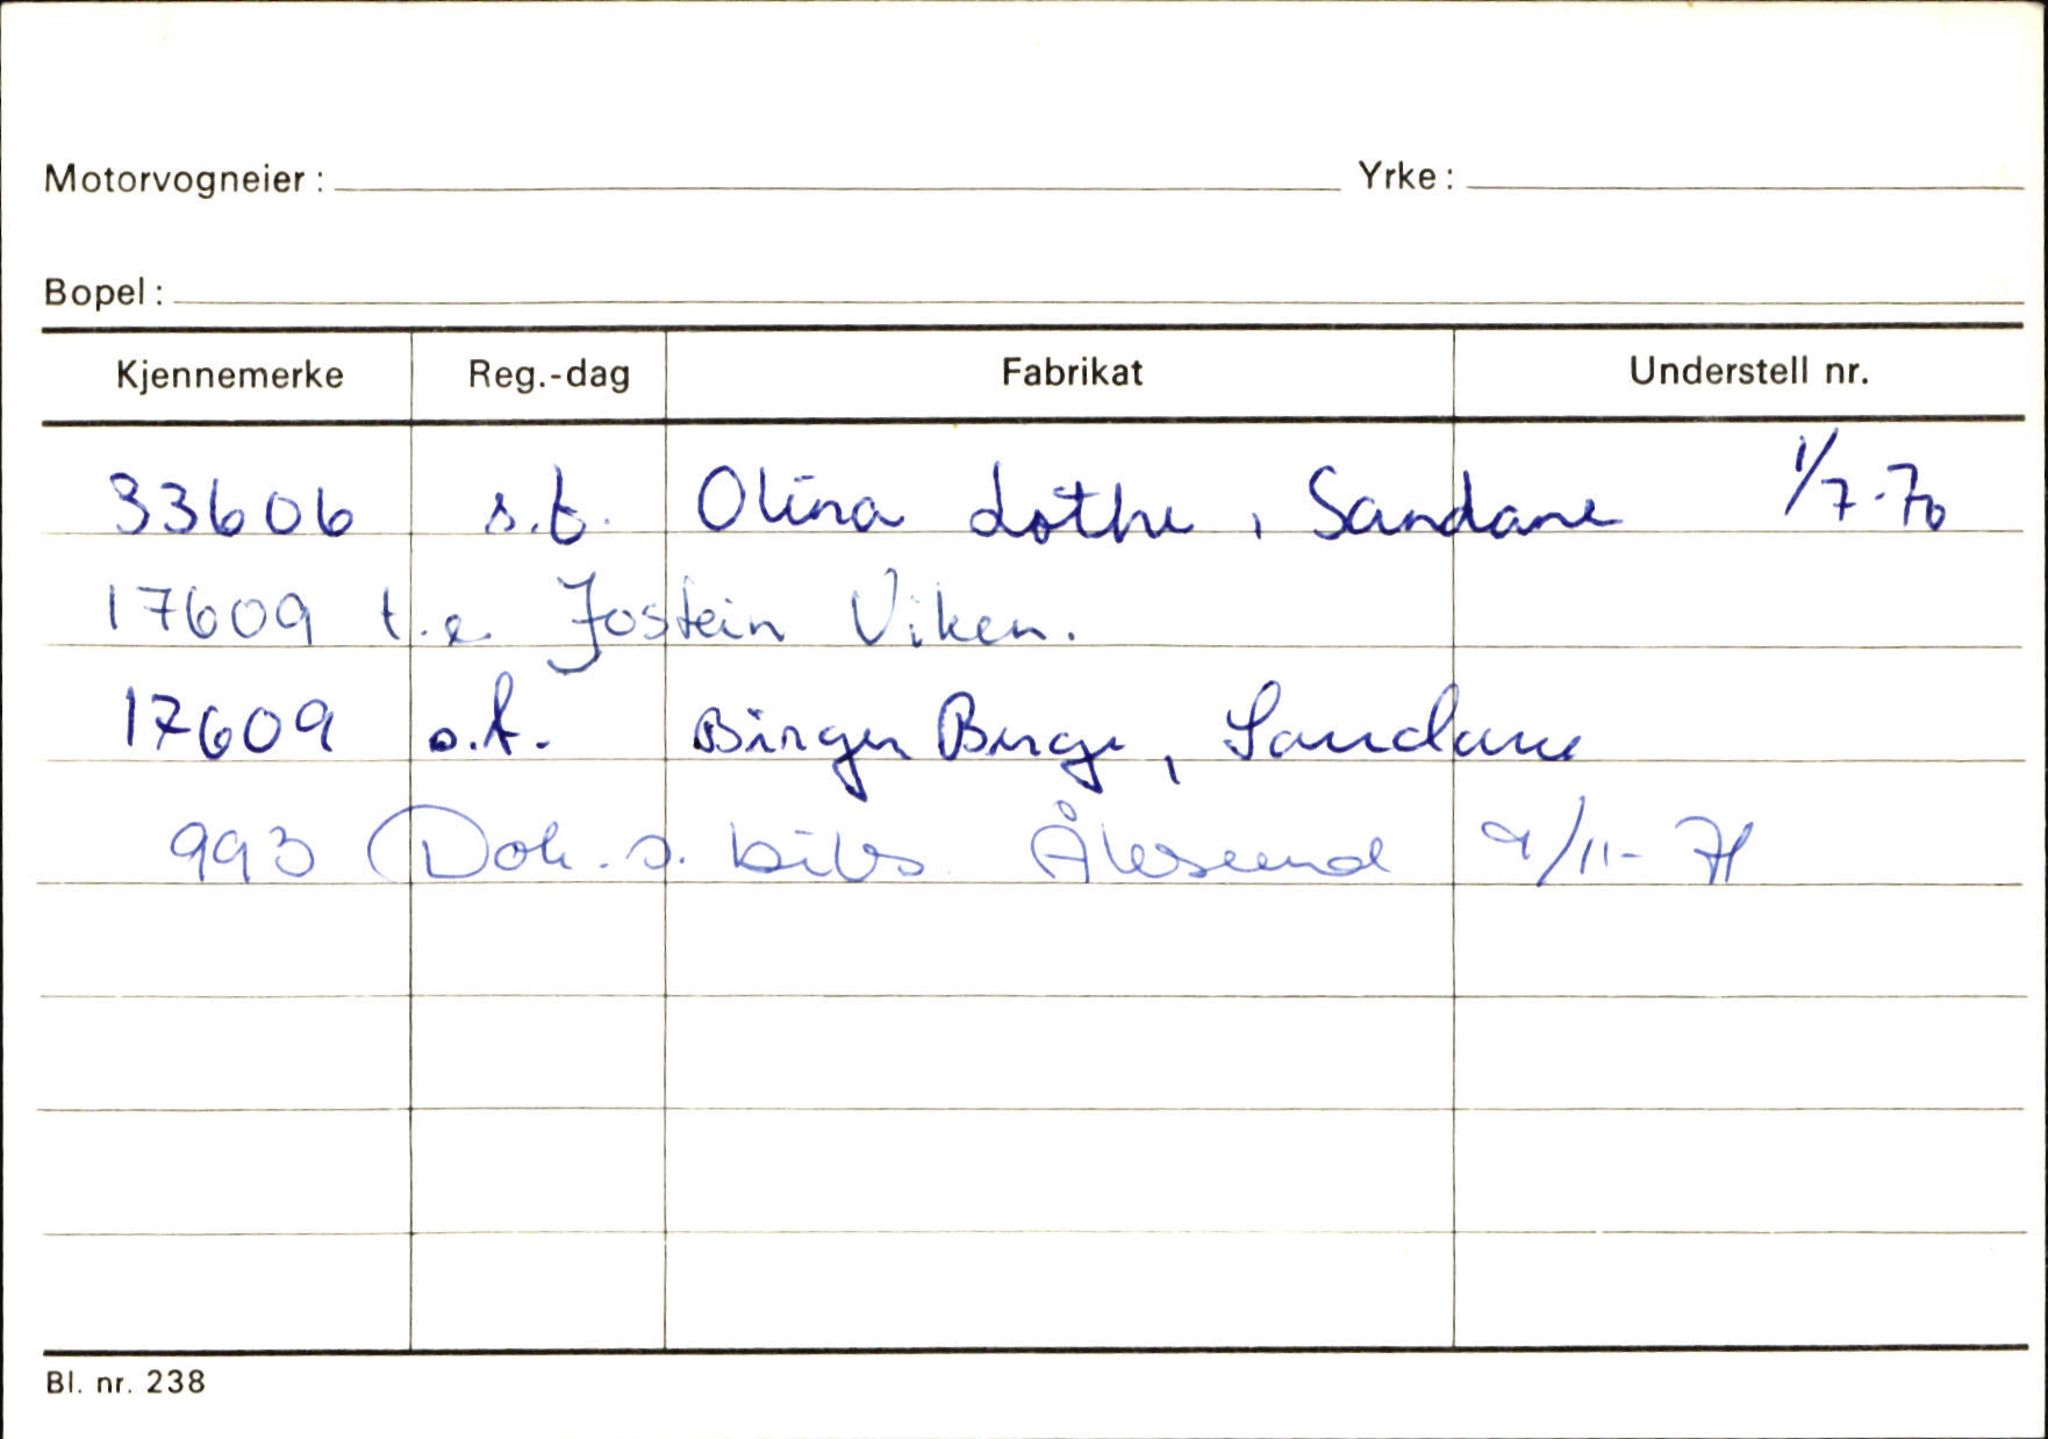 Motorvogneier: Yrke:
Bopel:
Kjennemerke Reg.-dag Fabrikat Understell nr.
33606 s.t. Olina Løthe, Sandane 1/7-70
17609 t.e. Jostein Viken.
17609 o.t. Birger Berge, Sandane
993 Dok. s. bils. Ålesund 9/11-71
Bl. nr. 238